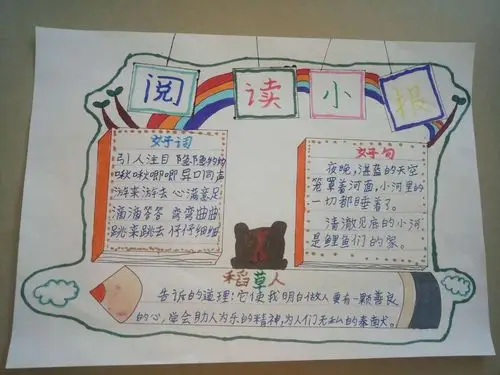 阅读小报
好词
引人注目 隐隐约约
啾啾唧唧 异口同声
游来游去 心满意足
滴滴答答 弯弯曲曲
跳来跳去 仔仔细细
好句
夜晚，湛蓝的天空
笼罩着河面，小河里的
一切都睡着了。
清澈见底的小河
是鲤鱼们的家。
稻草人
告诉的道理：它使我明白做人要有一颗善良
的心，学会助人为乐的精神，为人们无私的奉献。